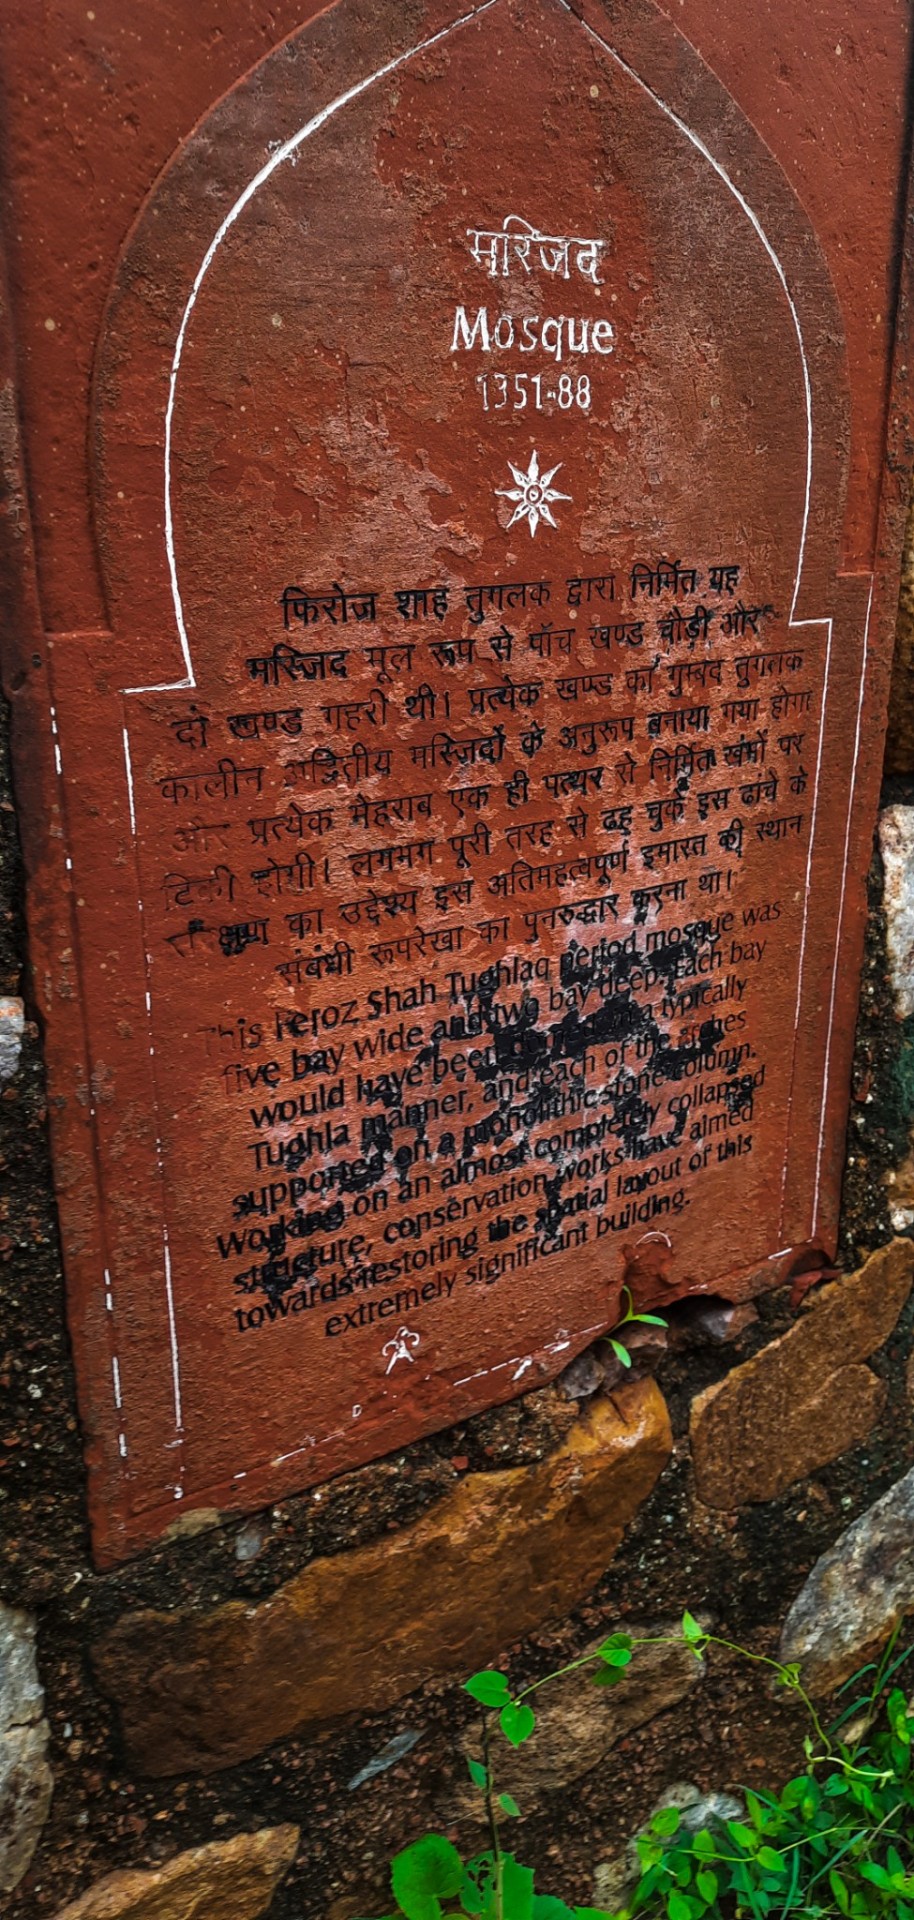 मस्जिद
Mosque
1351-88
फिरोज शाह तुगलक द्वारा निर्मित यह
मस्जिद मूल रूप से पाँच खण्ड चौड़ी और
दो खण्ड गहरी थी। प्रत्येक खण्ड का गुम्बद तुगलक
कालीन अद्वितीय मस्जिदों के अनुरूप बनाया गया होगा
और प्रत्येक मेहराब एक ही पत्थर से निर्मित खंभों पर
टिकी होगी। लगभग पूरी तरह से ढह चुके इस ढांचे के
का उद्देश्य इस अतिमहत्वपूर्ण इमारत की स्थान
संबंधी रूपरेखा का पुनरुद्धार करना था।
This Feroz Shah Tughlaq period mosque was
five bay wide and two bay deep. Each bay
would have been domed in a typically
Tughla manner, and each of the arches
supported on a monolithic stone column.
Working on an almost completely collapsed
structure, conservation works have aimed
towards restoring the spatial layout of this
extremely significant building.